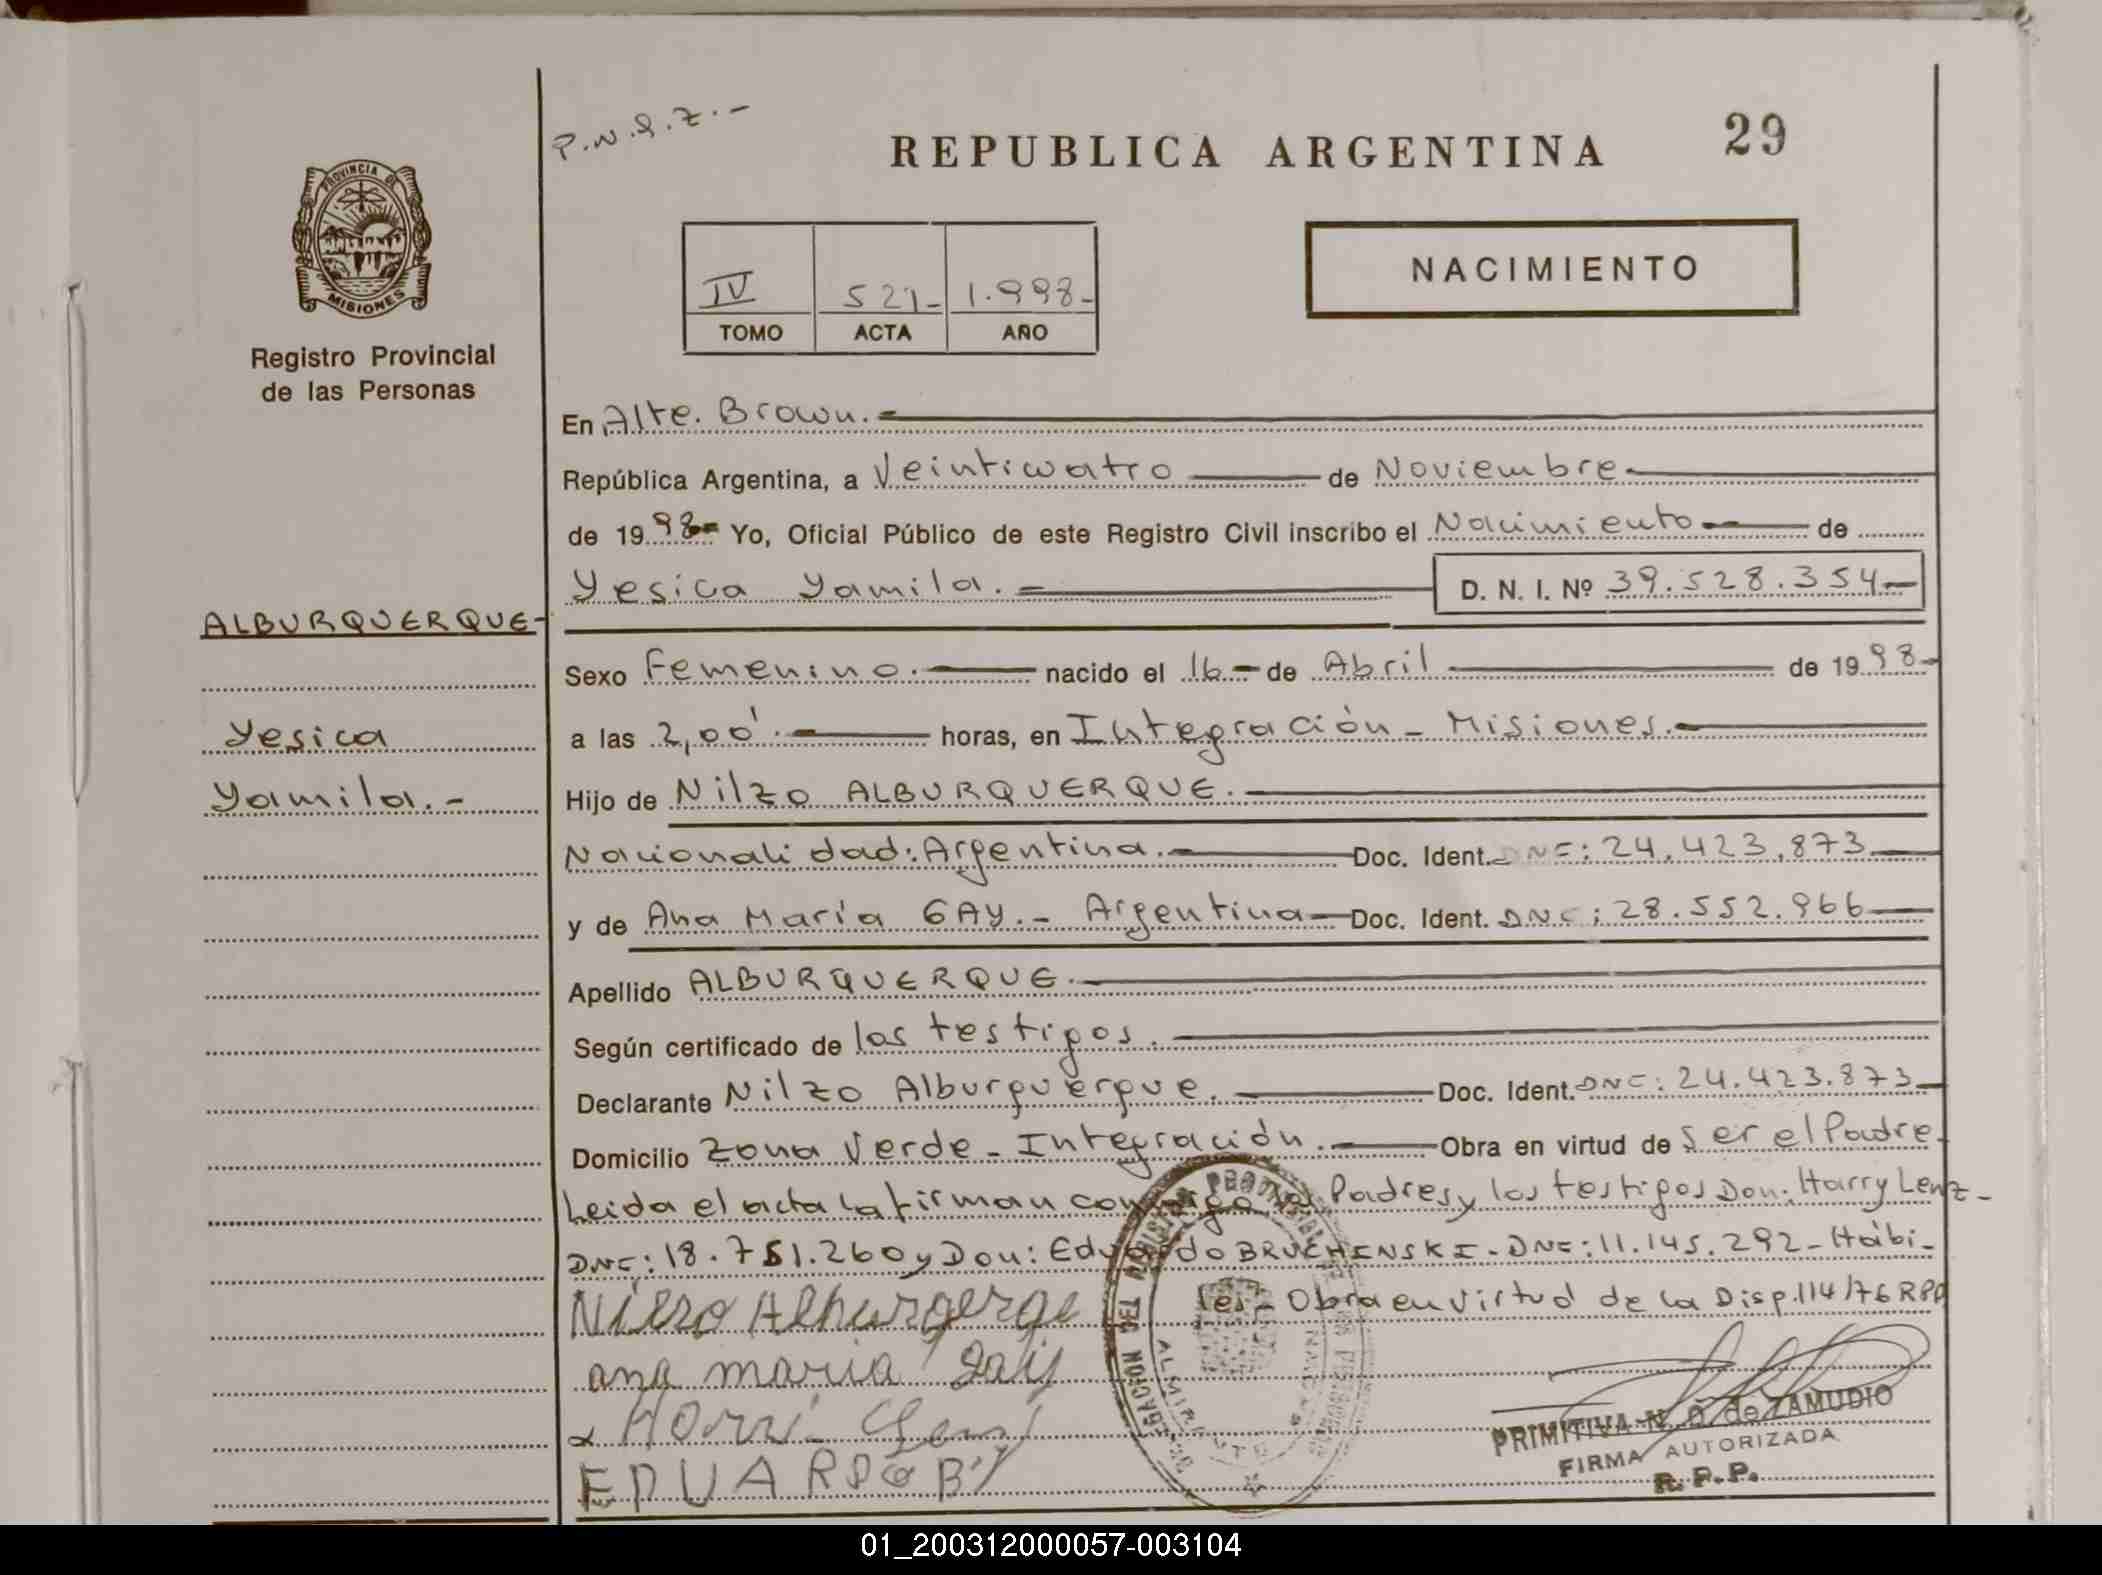 P.N.S.Z.-
REPUBLICA ARGENTINA
29
PROVINCIA DE
MISIONES
Registro Provincial
de las Personas
IV 521- 1.998-
TOMO ACTA AÑO
NACIMIENTO
En Alte. Brown.-
República Argentina, a Veinticuatro de Noviembre-
de 1998- Yo, Oficial Público de este Registro Civil inscribo el Nacimiento- de
Yesica Yamila.- D. N. I. Nº 39.528.354-
ALBURQUERQUE-
Yesica
Yamila.-
Sexo Femenino.- nacido el 16- de Abril de 1998-
a las 2,00'.- horas, en Integración - Misiones.-
Hijo de Nilzo ALBURQUERQUE.-
Nacionalidad: Argentina.- Doc. Ident. DNI: 24.423.873-
y de Ana María GAY.- Argentina- Doc. Ident. DNI: 28.552.966-
Apellido ALBURQUERQUE.-
Según certificado de los testigos.-
Declarante Nilzo Alburquerque.- Doc. Ident. DNI: 24.423.873-
Domicilio Zona Verde - Integración.- Obra en virtud de Ser el Padre.
Leida el acta la firman conmigo los Padres y los testigos Don: Harry Lenz-
DNI: 18.751.260 y Don: Eduardo BRUCHINSKI- DNI: 11.145.292- Hábi-
les- Obra en virtud de la Disp. 114/76 RPP
ana maria Gay
EDUARDO B
PRIMITIVA N. de ZAMUDIO
FIRMA AUTORIZADA
R.P.P.
01_200312000057-003104